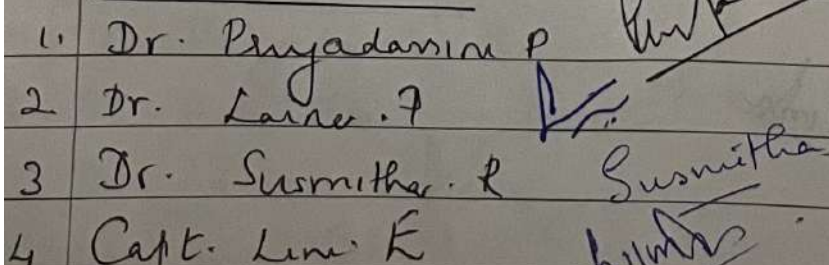 1. Dr. Priyadarsini P
2 Dr. . F
3 Dr. Susmitha. R Susmitha
4 Capt. Lini. E